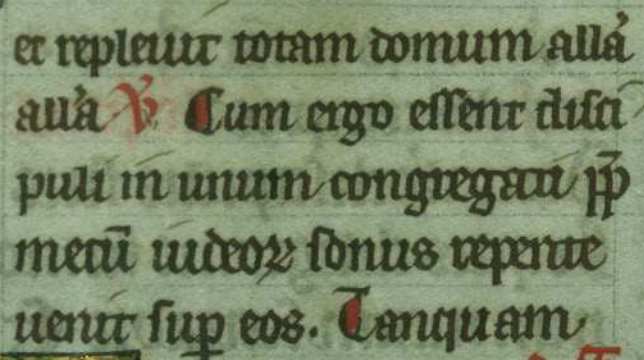 et repleuit totam domum alla᷃
alla ℣. Cum ergo essent disci
puli in unum congregati pp̄
metū iudeoꝝ sonus repente
uenit suꝑ eos. Tanquam